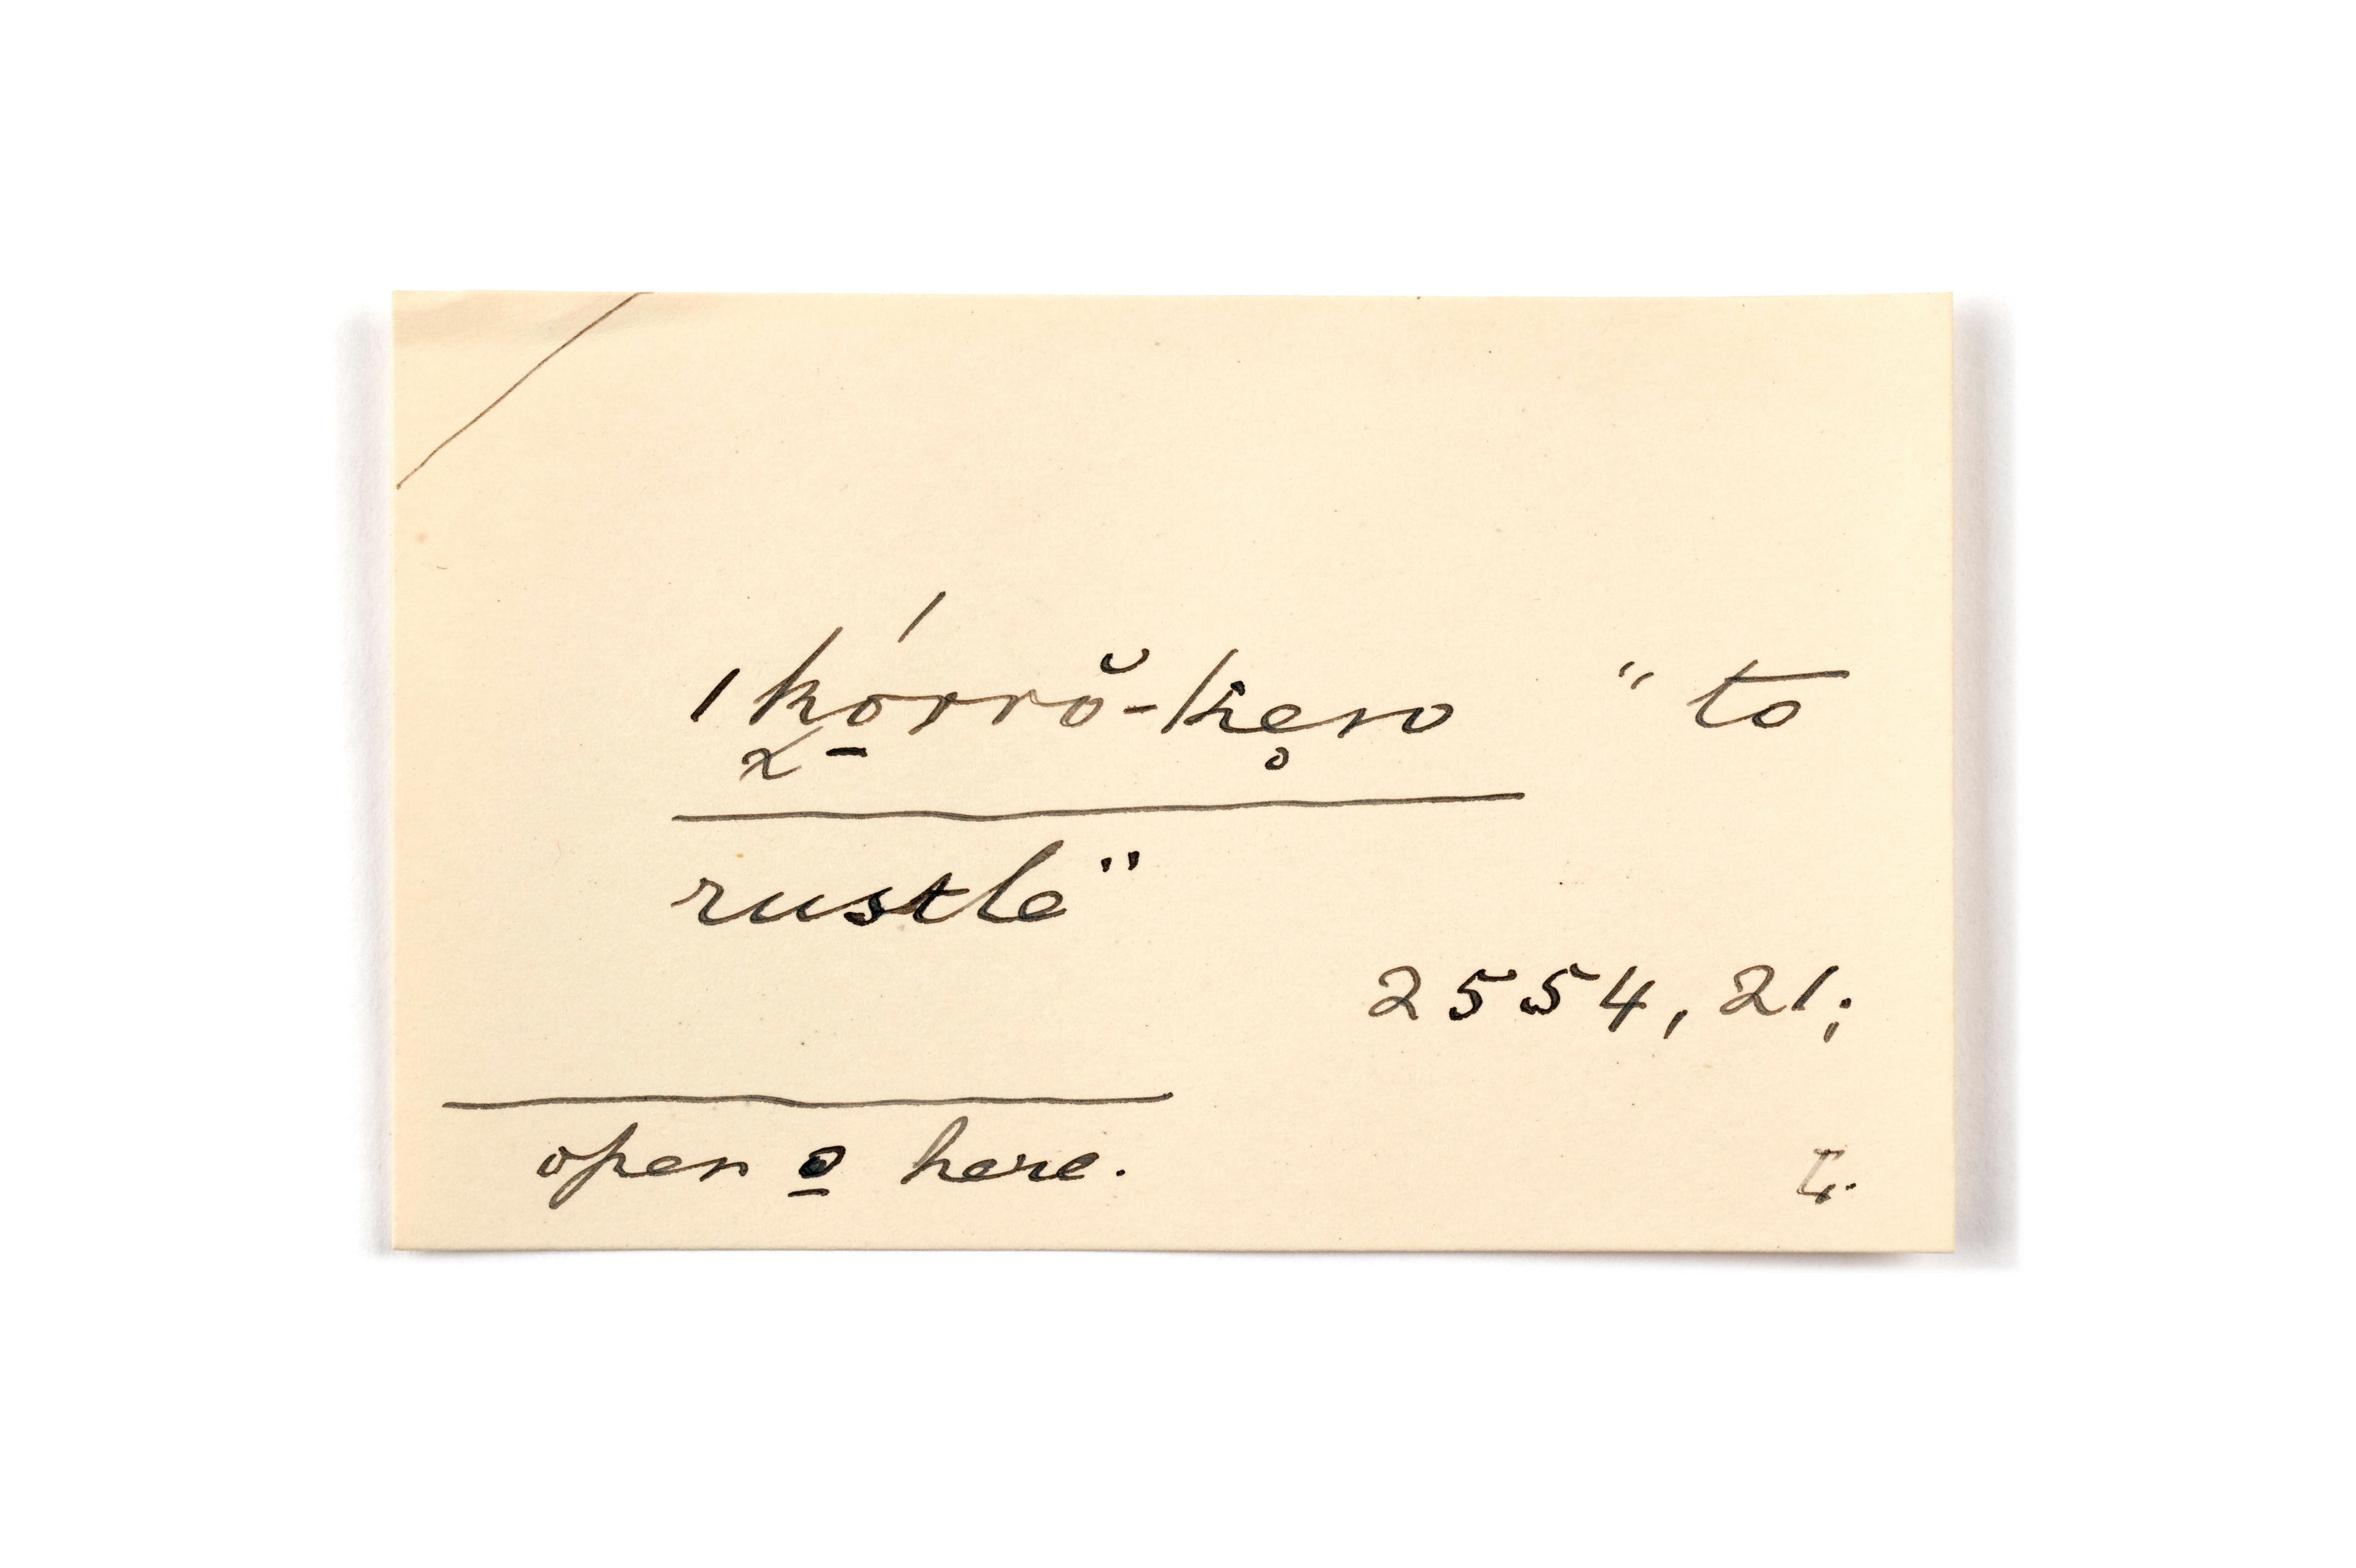 ǀkó̱rrŏ-ke̥n "to
rustle"
2554, 21;
open o̱ here.